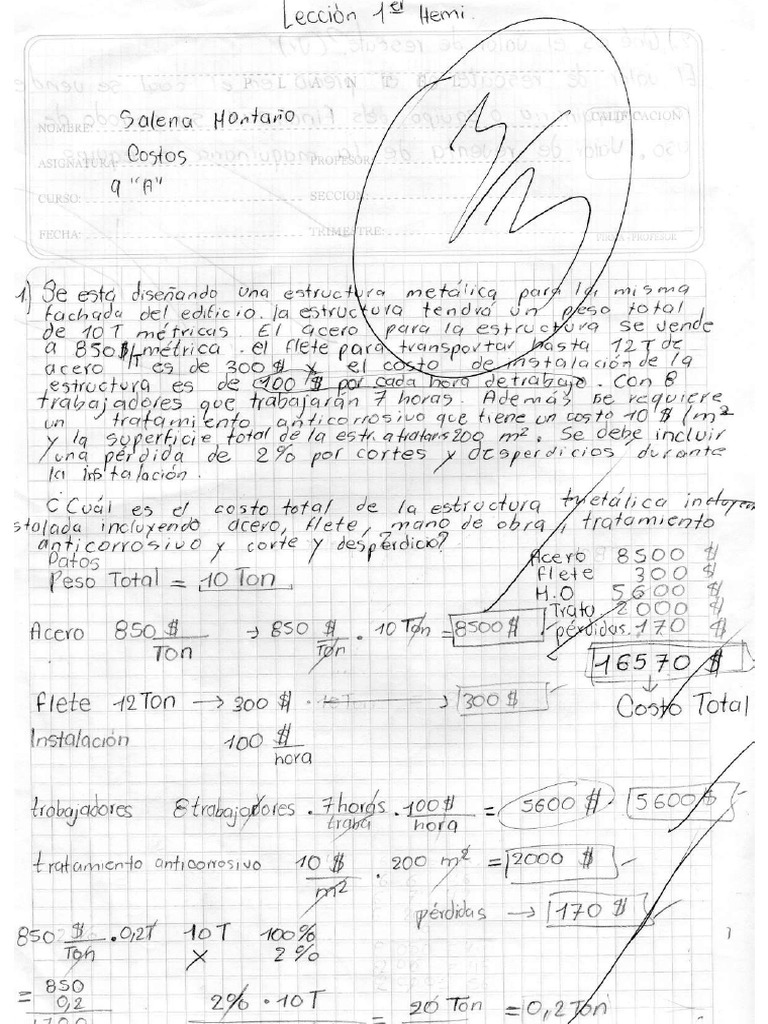 Lección 1er Hemi.
NOMBRE: Salena Montaño
CALIFICACION
ASIGNATURA: Costos PROFESOR:
CURSO: 9 "A" SECCION:
FECHA: TRIMESTRE: FIRMA PROFESOR
1) Se está diseñando una estructura metálica para la misma
fachada del edificio. la estructura tendrá un peso total
de 10T métricas. El acero para la estructura se vende
a 850$/T métrica. el flete para transportar hasta 12T de
acero es de 300 $ y el costo de instalación de la
estructura es de 100 $ por cada hora de trabajo. Con 8
trabajadores que trabajarán 7 horas. Además se requiere
un tratamiento anticorrosivo que tiene un costo 10 $/m²
y la superficie total de la estr. a tratar is 200 m². Se debe incluir
una pérdida de 2% por cortes y desperdicios durante
la instalación.
¿Cuál es el costo total de la estructura metálica
stalada incluyendo acero, flete, mano de obra, tratamiento
anticorrosivo y corte y desperdicio?
Datos
Peso Total = 10 Ton
Acero 8500 $
flete 300 $
M.O 5600 $
Trato 2000 $
pérdidas. 170 $
16570 $
Costo Total
Acero 850 $/Ton → 850 $/Ton · 10 Ton = 8500 $
flete 12 Ton → 300 $ · 10 Ton → 300 $
Instalación 100 $/hora
trabajadores 8 trabajadores · 7 horas/traba · 100 $/hora = 5600 $ · 5600 $
tratamiento anticorrosivo 10 $/m² · 200 m² = 2000 $
pérdidas → 170 $
850 $/Ton · 0,2T 10T 100%
X 2%
= 850
0,2
1700
2% · 10T = 20 Ton = 0,2 Ton